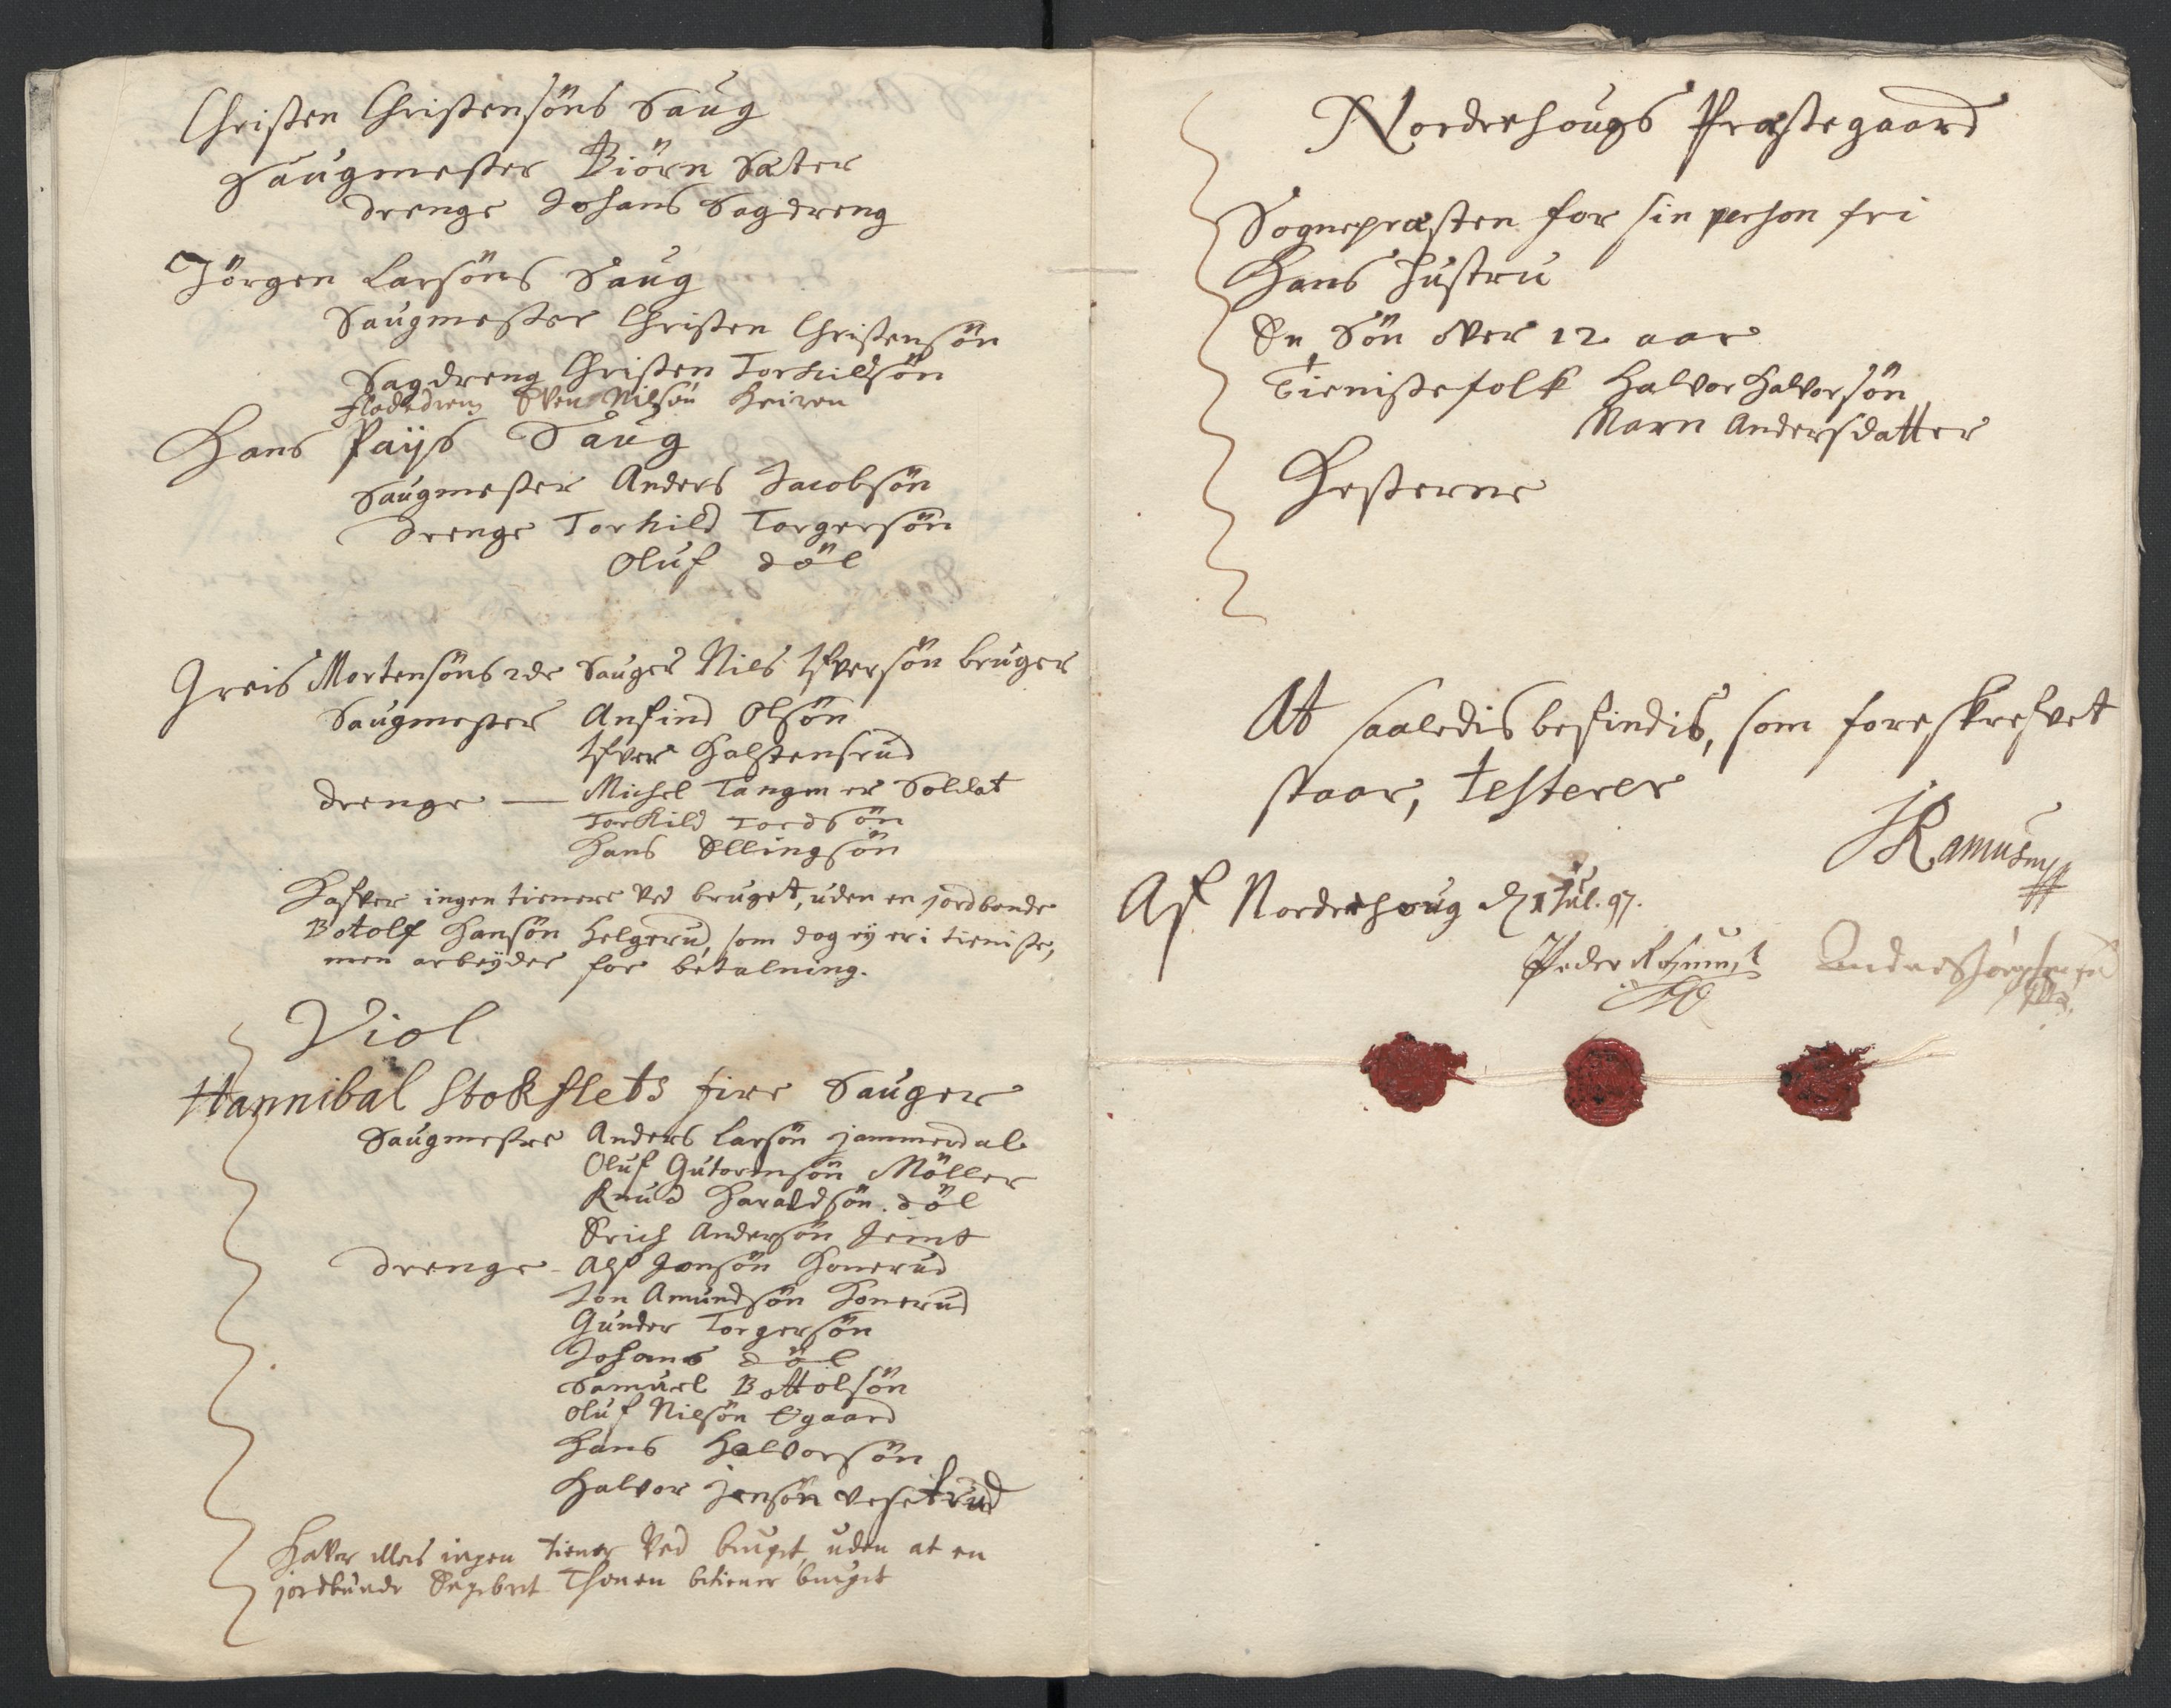 Christen Christensöns Saug
Saugmester Biörn Sæter
drenge Johans Sagdreng
Jörgen Larsöns Saug
Saugmester Christen Christensön
Sagdreng Christen Torkildsön
Flodedreng Sven Nilsön
Hans Paÿs Saug
Saugmester Anders Jacobsön
drenge Torkild Torgersön
Oluf döl
Greis Mortensöns 2de Sauger Nils Ifversön bruger
Saugmester Anfind Olsön
Ifver Halstensrud
drenge — Michel Tangen er Soldat
Torkild Tordsön
Hans Ellingsön
Hafver ingen tienere ved bruget, uden en jordbonde
Botolf Hansön Helgerud, som dog ey er i tieniste,
men arbeÿder for betalning.
Viol
Hannibal Stokflets fire Sauger
Saugmestre Anders Larsön jammerdal
Oluf Gutormsön Möller
Knud Haraldsön döl
Erich Andersön Jemt
drenge - Alf Jonsön Honerud
Jon Amundsön Honerud
Gunder Torgersön
Johans döl
Samuel Bottolsön
Oluf Nilsön Ögaard
Hans Halvorsön
Halvor Jensön Vesetrud
Haver ellers ingen tiener ved bruget, uden at en
jordbunde Engebret Thonen betiener bruget
Norderhougs Præstegaard
Sognepræsten for sin person fri
Hans Hustru
En Sön over 12 aar
Tienistefolk Halvor Halvorsön
Marn Andersdatter
Hesterne
At saaledis befindis, som foreskrefvet
staar, testerer
JRamus
Af Norderhoug d 1 Jul. 97.
Peder